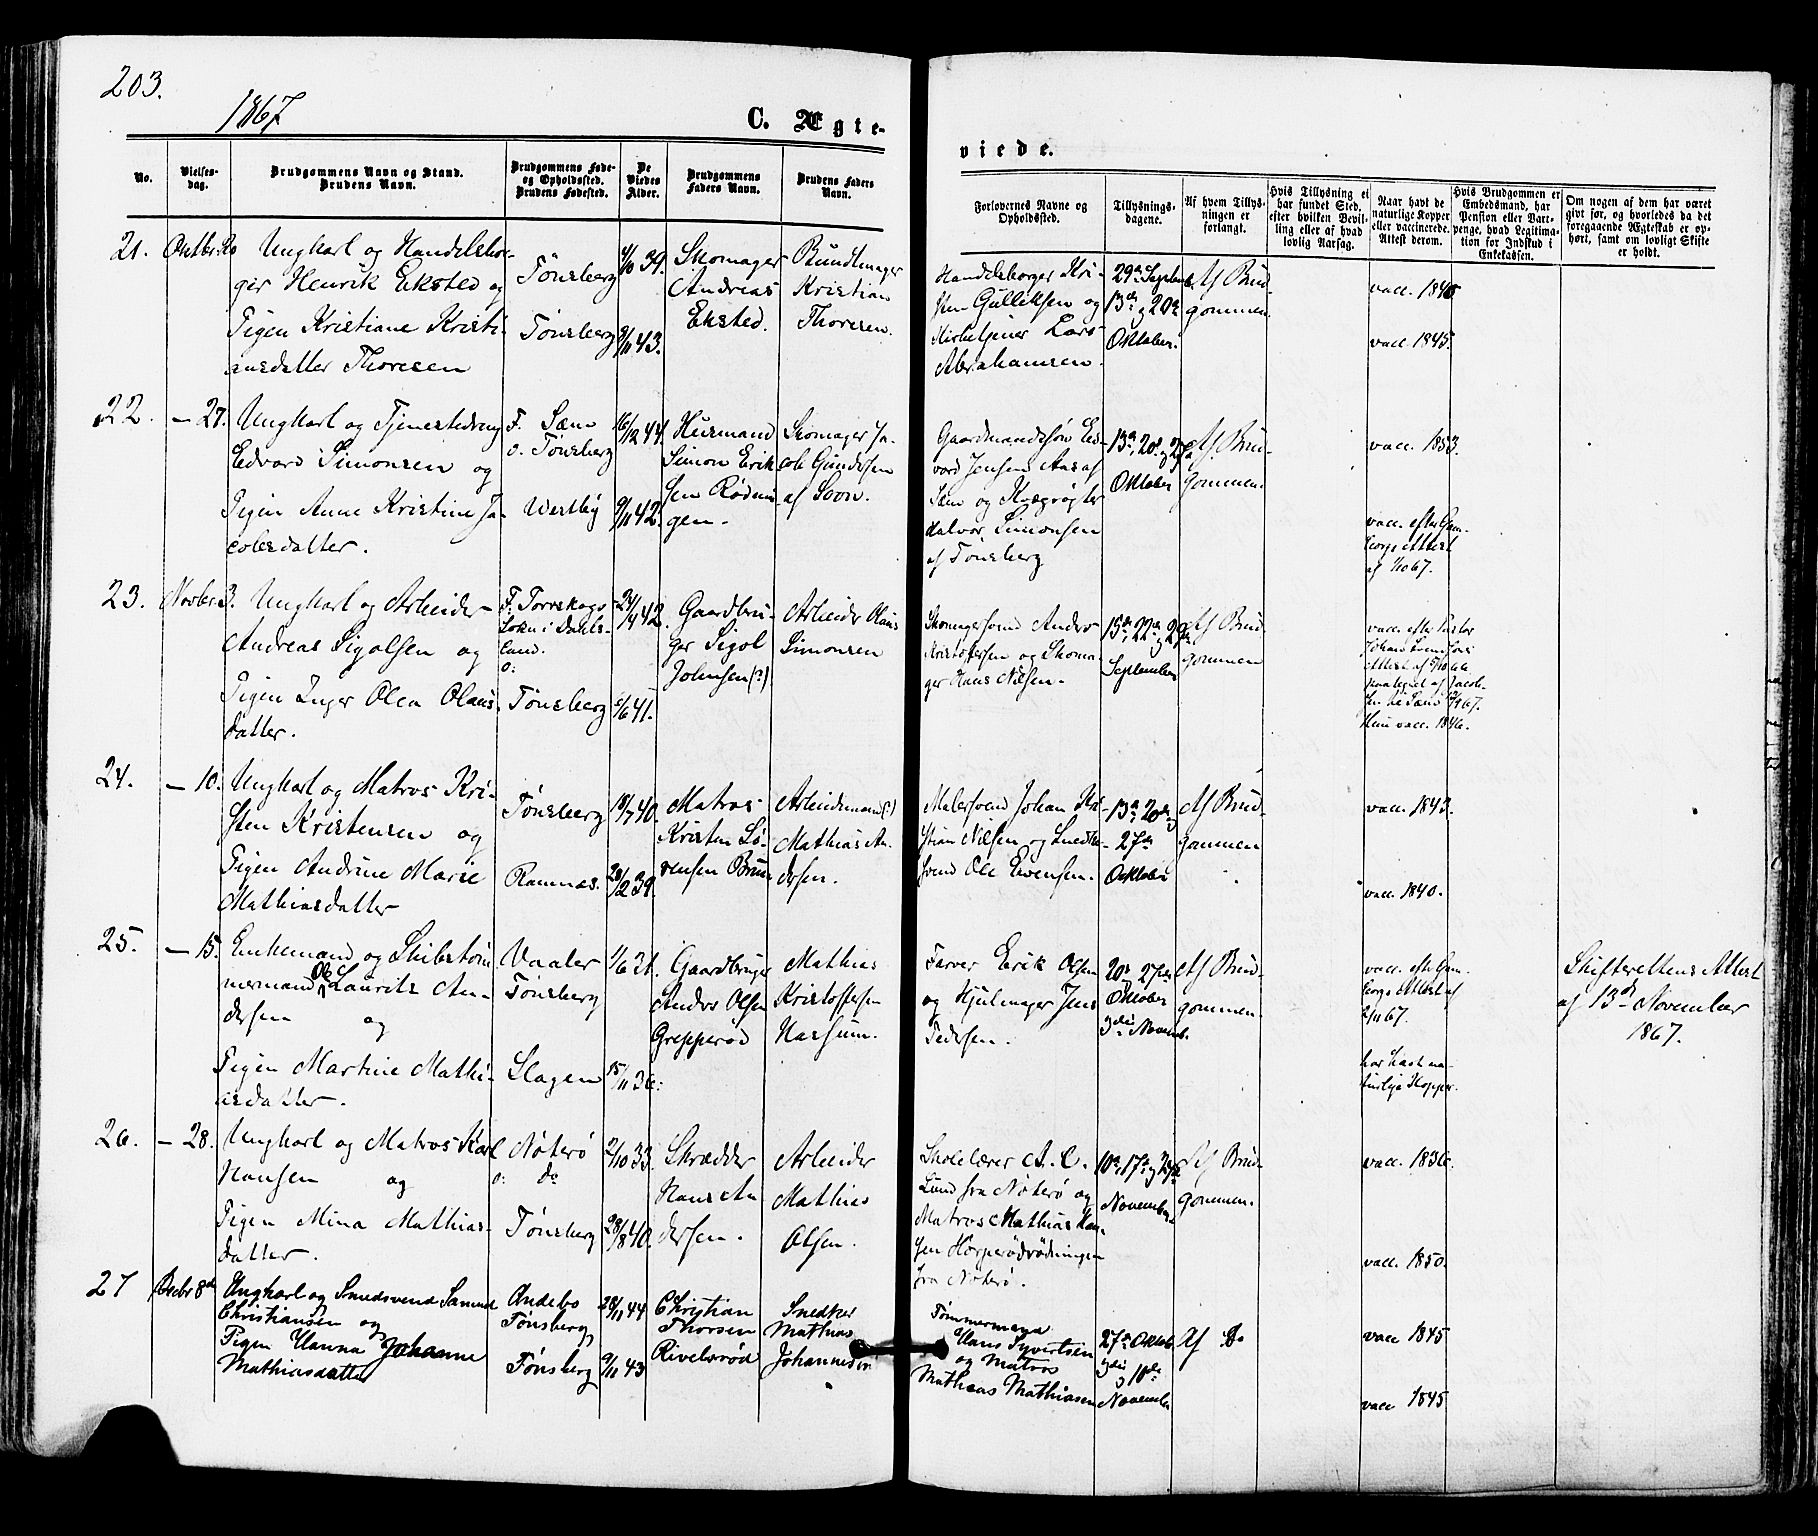 203.
1867.
C. Ægte-
viede.
No.
Vielses-
dag.
Brudgommens Navn og Stand.
Brudens Navn.
Brudgommens Føde-
og Opholdssted.
Brudens Fødested.
De
Viedes
Alder.
Brudgommens
Faders Navn.
Brudens Faders
Navn.
Forlovernes Navne og
Opholdssted.
Tillysnings-
dagene.
Af hvem Tillys-
ningen er
forlangt.
Hvis Tillysning ei
har fundet Sted,
efter hvilken Bevil-
ling eller af hvad
lovlig Aarsag.
Naar havt de
naturlige Kopper
eller vaccinerede.
Attest derom.
Hvis Brudgommen er
Embedsmand, har
Pension eller Vart-
penge, hvad Legitima-
tion for Indskud i
Enkekassen.
Om nogen af dem har været
givt før, og hvorledes da det
foregaaende Ægteskab er op-
hørt, samt om lovligt Skifte
er holdt.
21.
Oktbr. 20
Ungkarl og Handelsbor-
ger Henrik Eksted og
Pigen Kristiane Kristi-
ansdatter Thoresen
Tønsberg
Tønsberg
/10 39.
/11 43.
Skomager
Andreas
Eksted.
Bundtmager
Kristian
Thoresen.
Handelsborger Kri-
sten Gulliksen og
Kirketjener Lars
Abrahamsen.
29de Septemb.
13de og 20de
Oktober.
Af Brud-
gommen.
vacc. 1840
vacc. 1845.
22.
— 27.
Ungkarl og Tjenestedreng
Edvard Simonsen og
Pigen Anne Kristine Ja-
cobsdatter.
F. Sæm
o. Tønsberg
Westby
16/12 44.
9/11 42.
Husmand
Simon Erik
sen Rødnin
gen.
Skomager Ja-
cob Gundersen
af Sovn.
Gaardmandssøn Ed-
vard Jensen Aas af
Sæm og Kvægrøgter
Halvor Simonsen
af Tønsberg
13de, 20de og 27de
Oktober
Af Brud-
gommen.
vacc. 1853.
vacc. efter Gam-
borgs Attest
af /1067.
23.
Novbr. 3.
Ungkarl og Arbeider
Andreas Sigolsen og
Pigen Inger Olea Olaus-
datter.
F: Torrskogs
Sokn i Dahls-
land.
o:
Tønsberg
24/1 42.
6/6 41.
Gaardbru-
ger Sigol
Johnsen (?)
Arbeider Olaus
Simonsen
Skomagersvend Anders
Kristoffersen og Skoma-
ger Hans Nilsen.
15de, 22de og 29de
September
Af Brud-
gommen
vacc. efter Pastor
Attest af
paategnet af Jacob-
sen
Hun vacc. 1846.
24.
— 10.
Ungkarl og Matros Kri-
sten Kristensen og
Pigen Andrine Marie
Mathiasdatter
Tønsberg
Ramnæs.
18/7 40.
28/2 39.
Matros
Kristen Sø-
rensen Bruun
Arbeidsmand (?)
Mathias An-
dersen.
Malersvend Johan Kri-
stian Nilsen og Snedker-
svend Ole Evensen.
13de, 20de og
27de
Oktober
Af Brud-
gommen
vacc. 1843.
vacc. 1840.
25.
— 15.
Enkemand og Skibstøm-
mermand Ole Laurits An-
dersen og
Pigen Martine Mathi-
asdatter.
Vaaler
Tønsberg
Slagen
1/6 21.
15/11 36.
Gaardbruger
Anders Olsen
Grepperød
Mathias
Kristoffersen
Narsum.
Farver Erik Olsen
og Hjulmager Jens
Pedersen.
20de, 27de
Oktober
3die Novemb.
Af Brud-
gommen.
vacc. efter Gam-
borgs Attest af
2/1167.
har havt na-
turlige Kopper.
Skifterettens Attest
af 13de November
1867.
26.
— 28.
Ungkarl og Matros Karl
Hansen og
Pigen Mina Mathias-
datter.
Nøterø
o: do
Tønsberg
2/10 33.
28/8 40.
Skrædder
Hans An
dersen.
Arbeider
Mathias
Olsen.
Skolelærer A. C.
Lund fra Nøterø og
Matros Mathias Han-
sen Horperødrødningen
fra Nøterø.
10de, 17de og
November
Af Brud-
gommen.
vacc. 1836.
vacc. 1850.
27
Decbr 8de
Ungkarl og Smedsvend Samuel
Christiansen og
Pigen Hanna Johanne
Mathiasdatter
Andebo
Tønsberg
Tønsberg
28/11 44
9/11 43
Christian
Thorsen
Rivelsrød
Snedker
Mathias
Johannesen
Tømmermand
Hans Syvertsen
og Matros
Mathias Mathiasen
27de Oktob
3die og 10de
November
Af Do
vacc 1845
vacc 1845